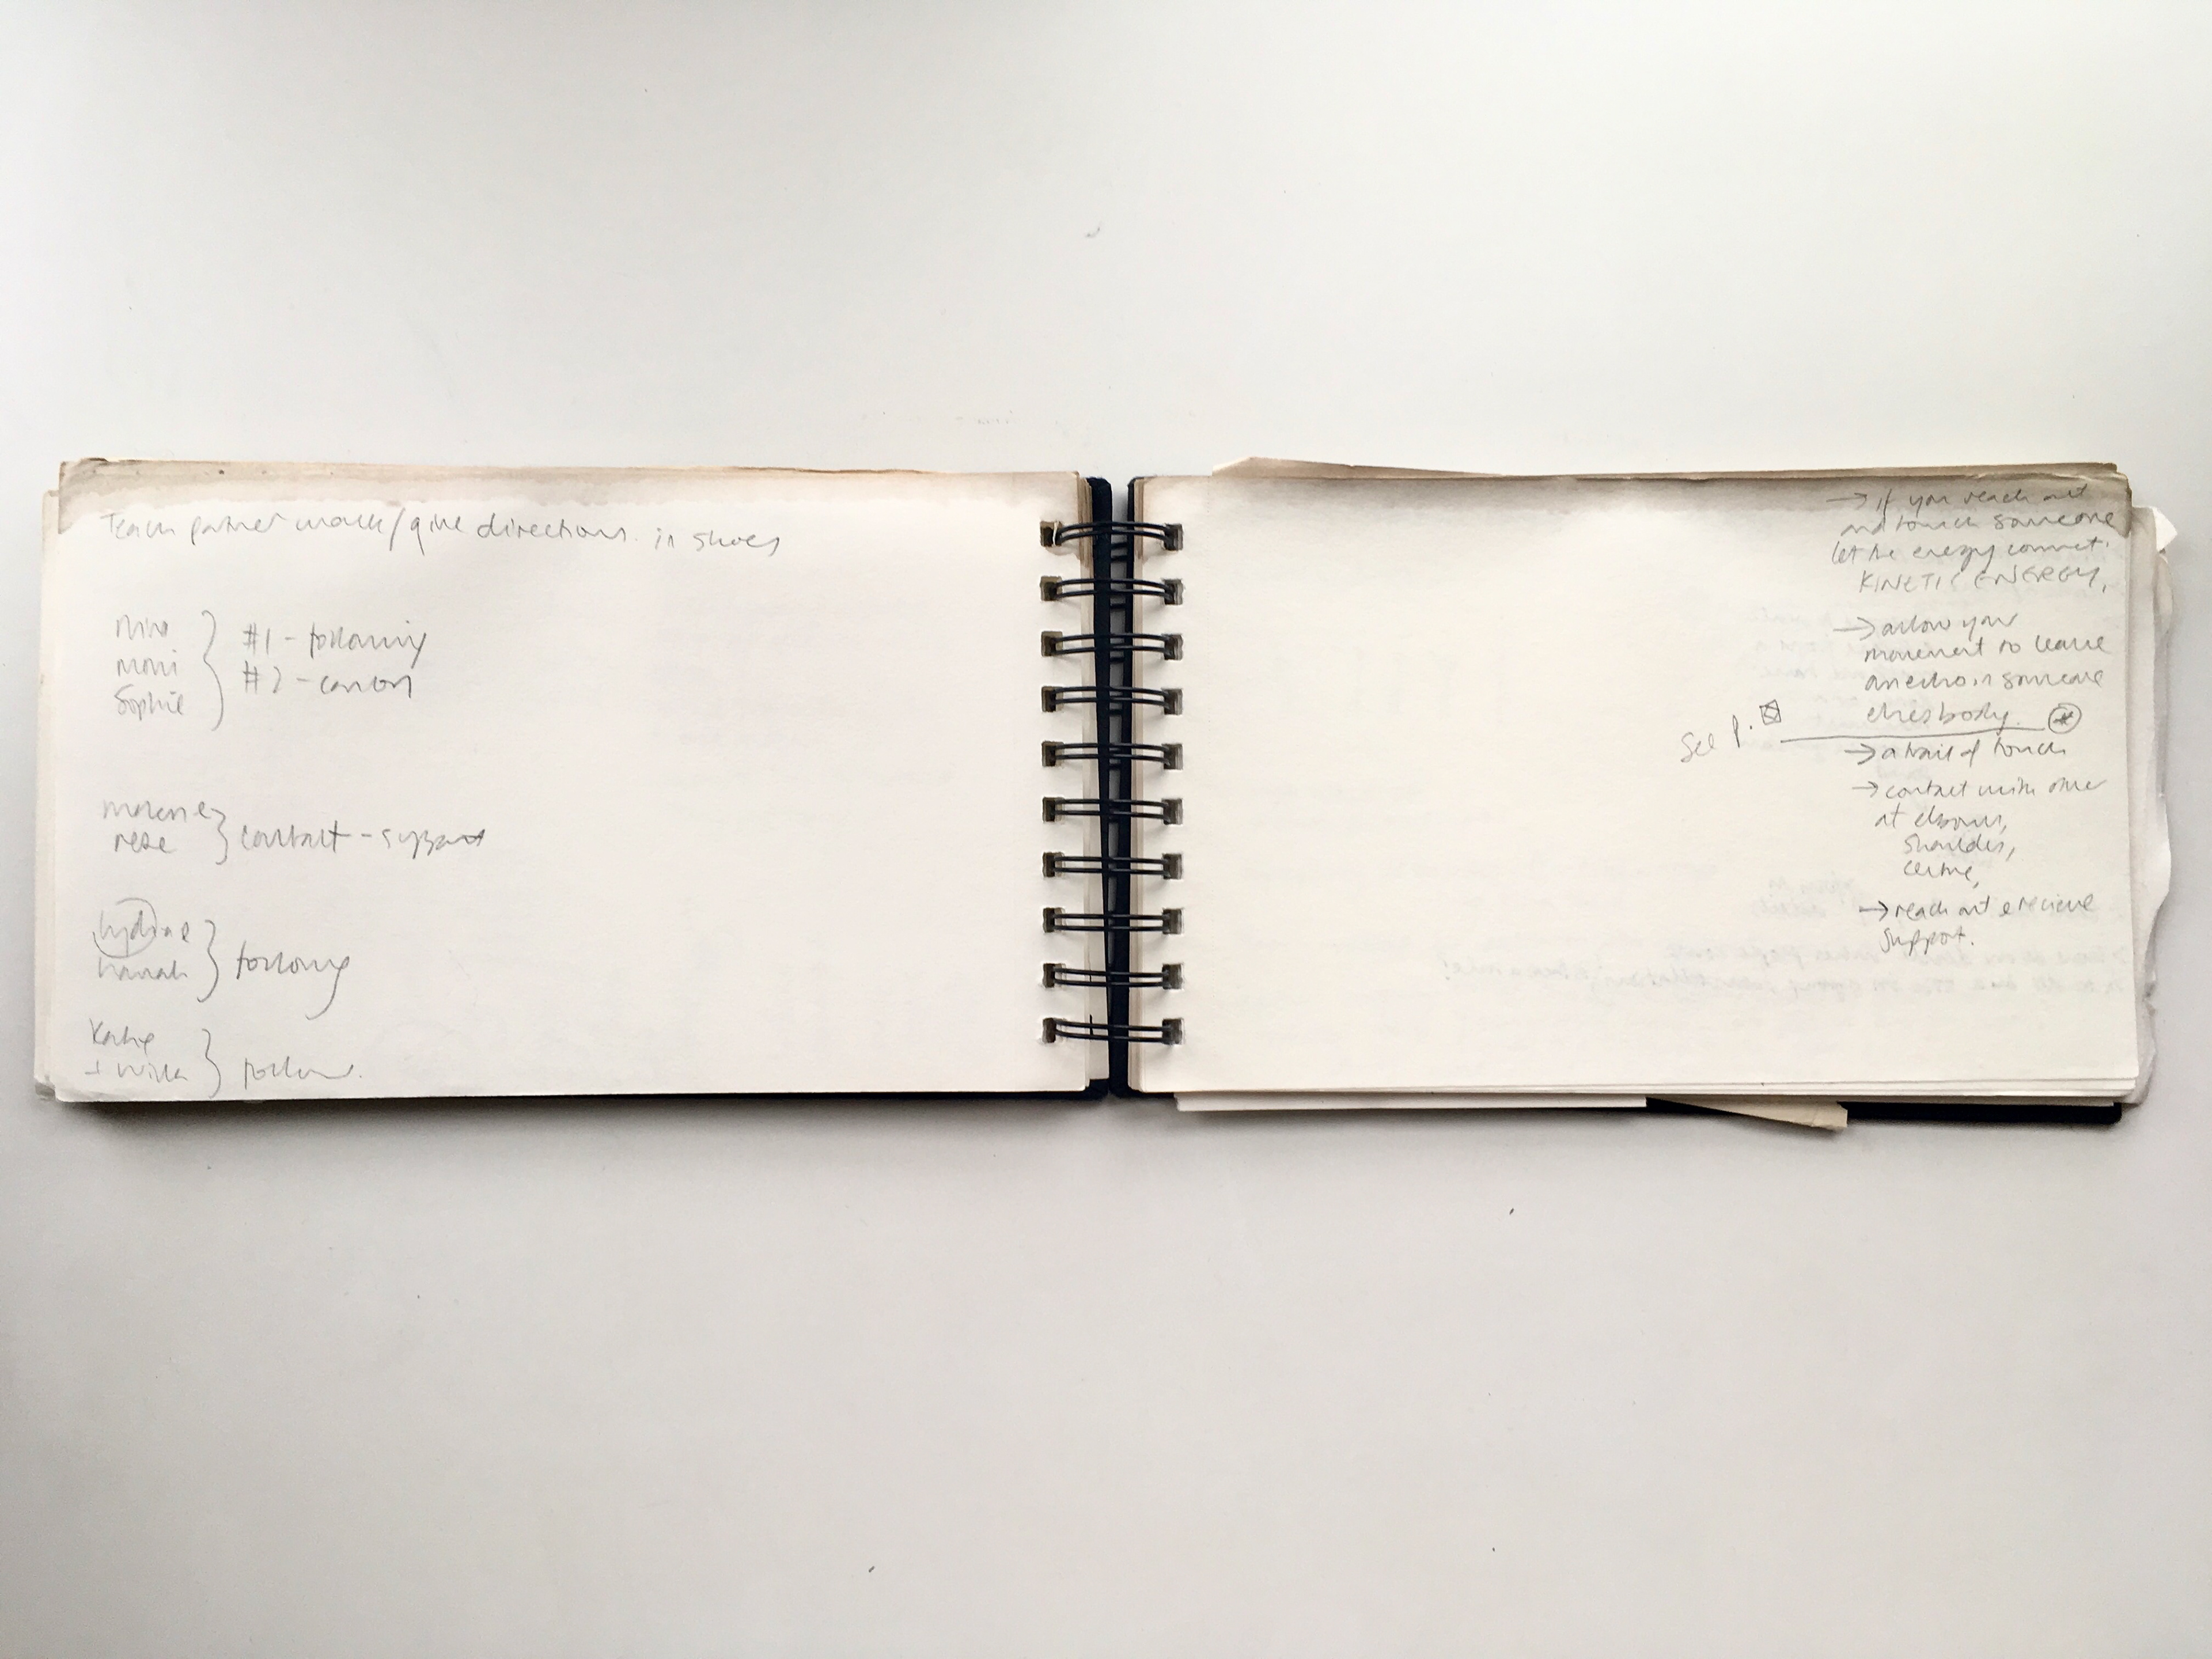 Teach partner work/give directions. in shoes
#1 - following
#2 - canon
Sophie
contact - support
hannah
following
Katie
+
follow.
→ if you reach out
and touch someone
let the energy connect.
KINETIC ENERGY.
→ allow your
movement to leave
an echo in someone
elses body. *
See p.
→ a trail of touch
→ contact with other
at elbows,
shoulders,
centre,
→ reach out & recieve
support.